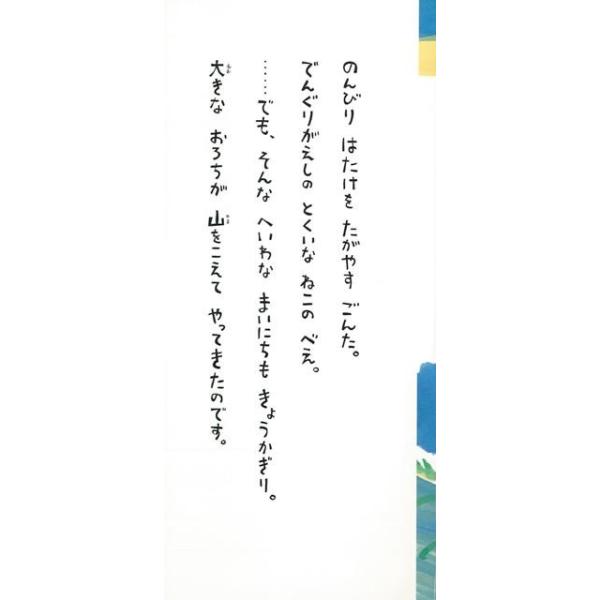 のんびり はたけを たがやす ごんた。
でんぐりがえしの とくいな ねこの べえ。
……でも、そんな へいわな まいにちも きょうかぎり。
大きな おろちが 山をこえて やってきたのです。